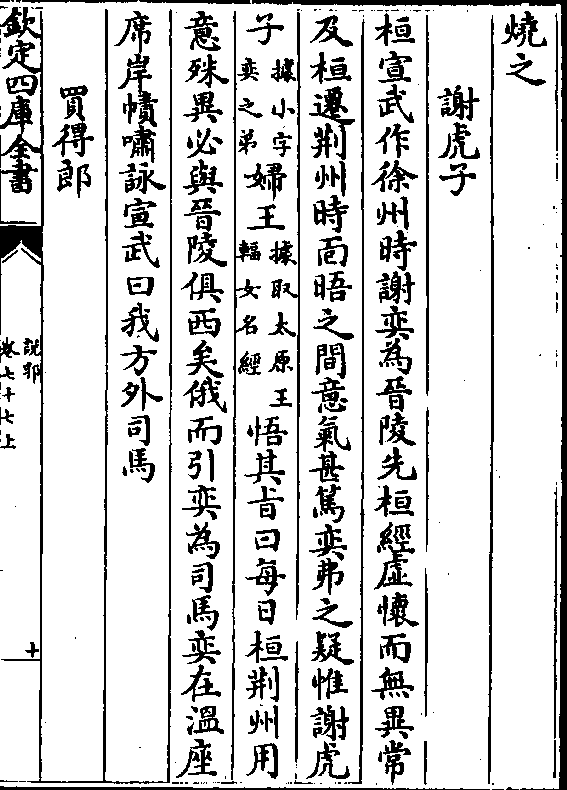 燒之
謝虎子
桓宣武作徐州時謝奕為晉陵先桓經虛懷而無異常
及桓遷荆州時面晤之間意氣甚篤奕弗之疑惟謝虎
子據小字奕之弟婦王據取太原王輻女名經悟其旨曰每日桓荆州用
意殊異必與晉陵俱西矣俄而引奕為司馬奕在溫座
席岸幘嘯詠宣武曰我方外司馬
買得郎
欽定四庫全書
說郛
卷七十七上
十